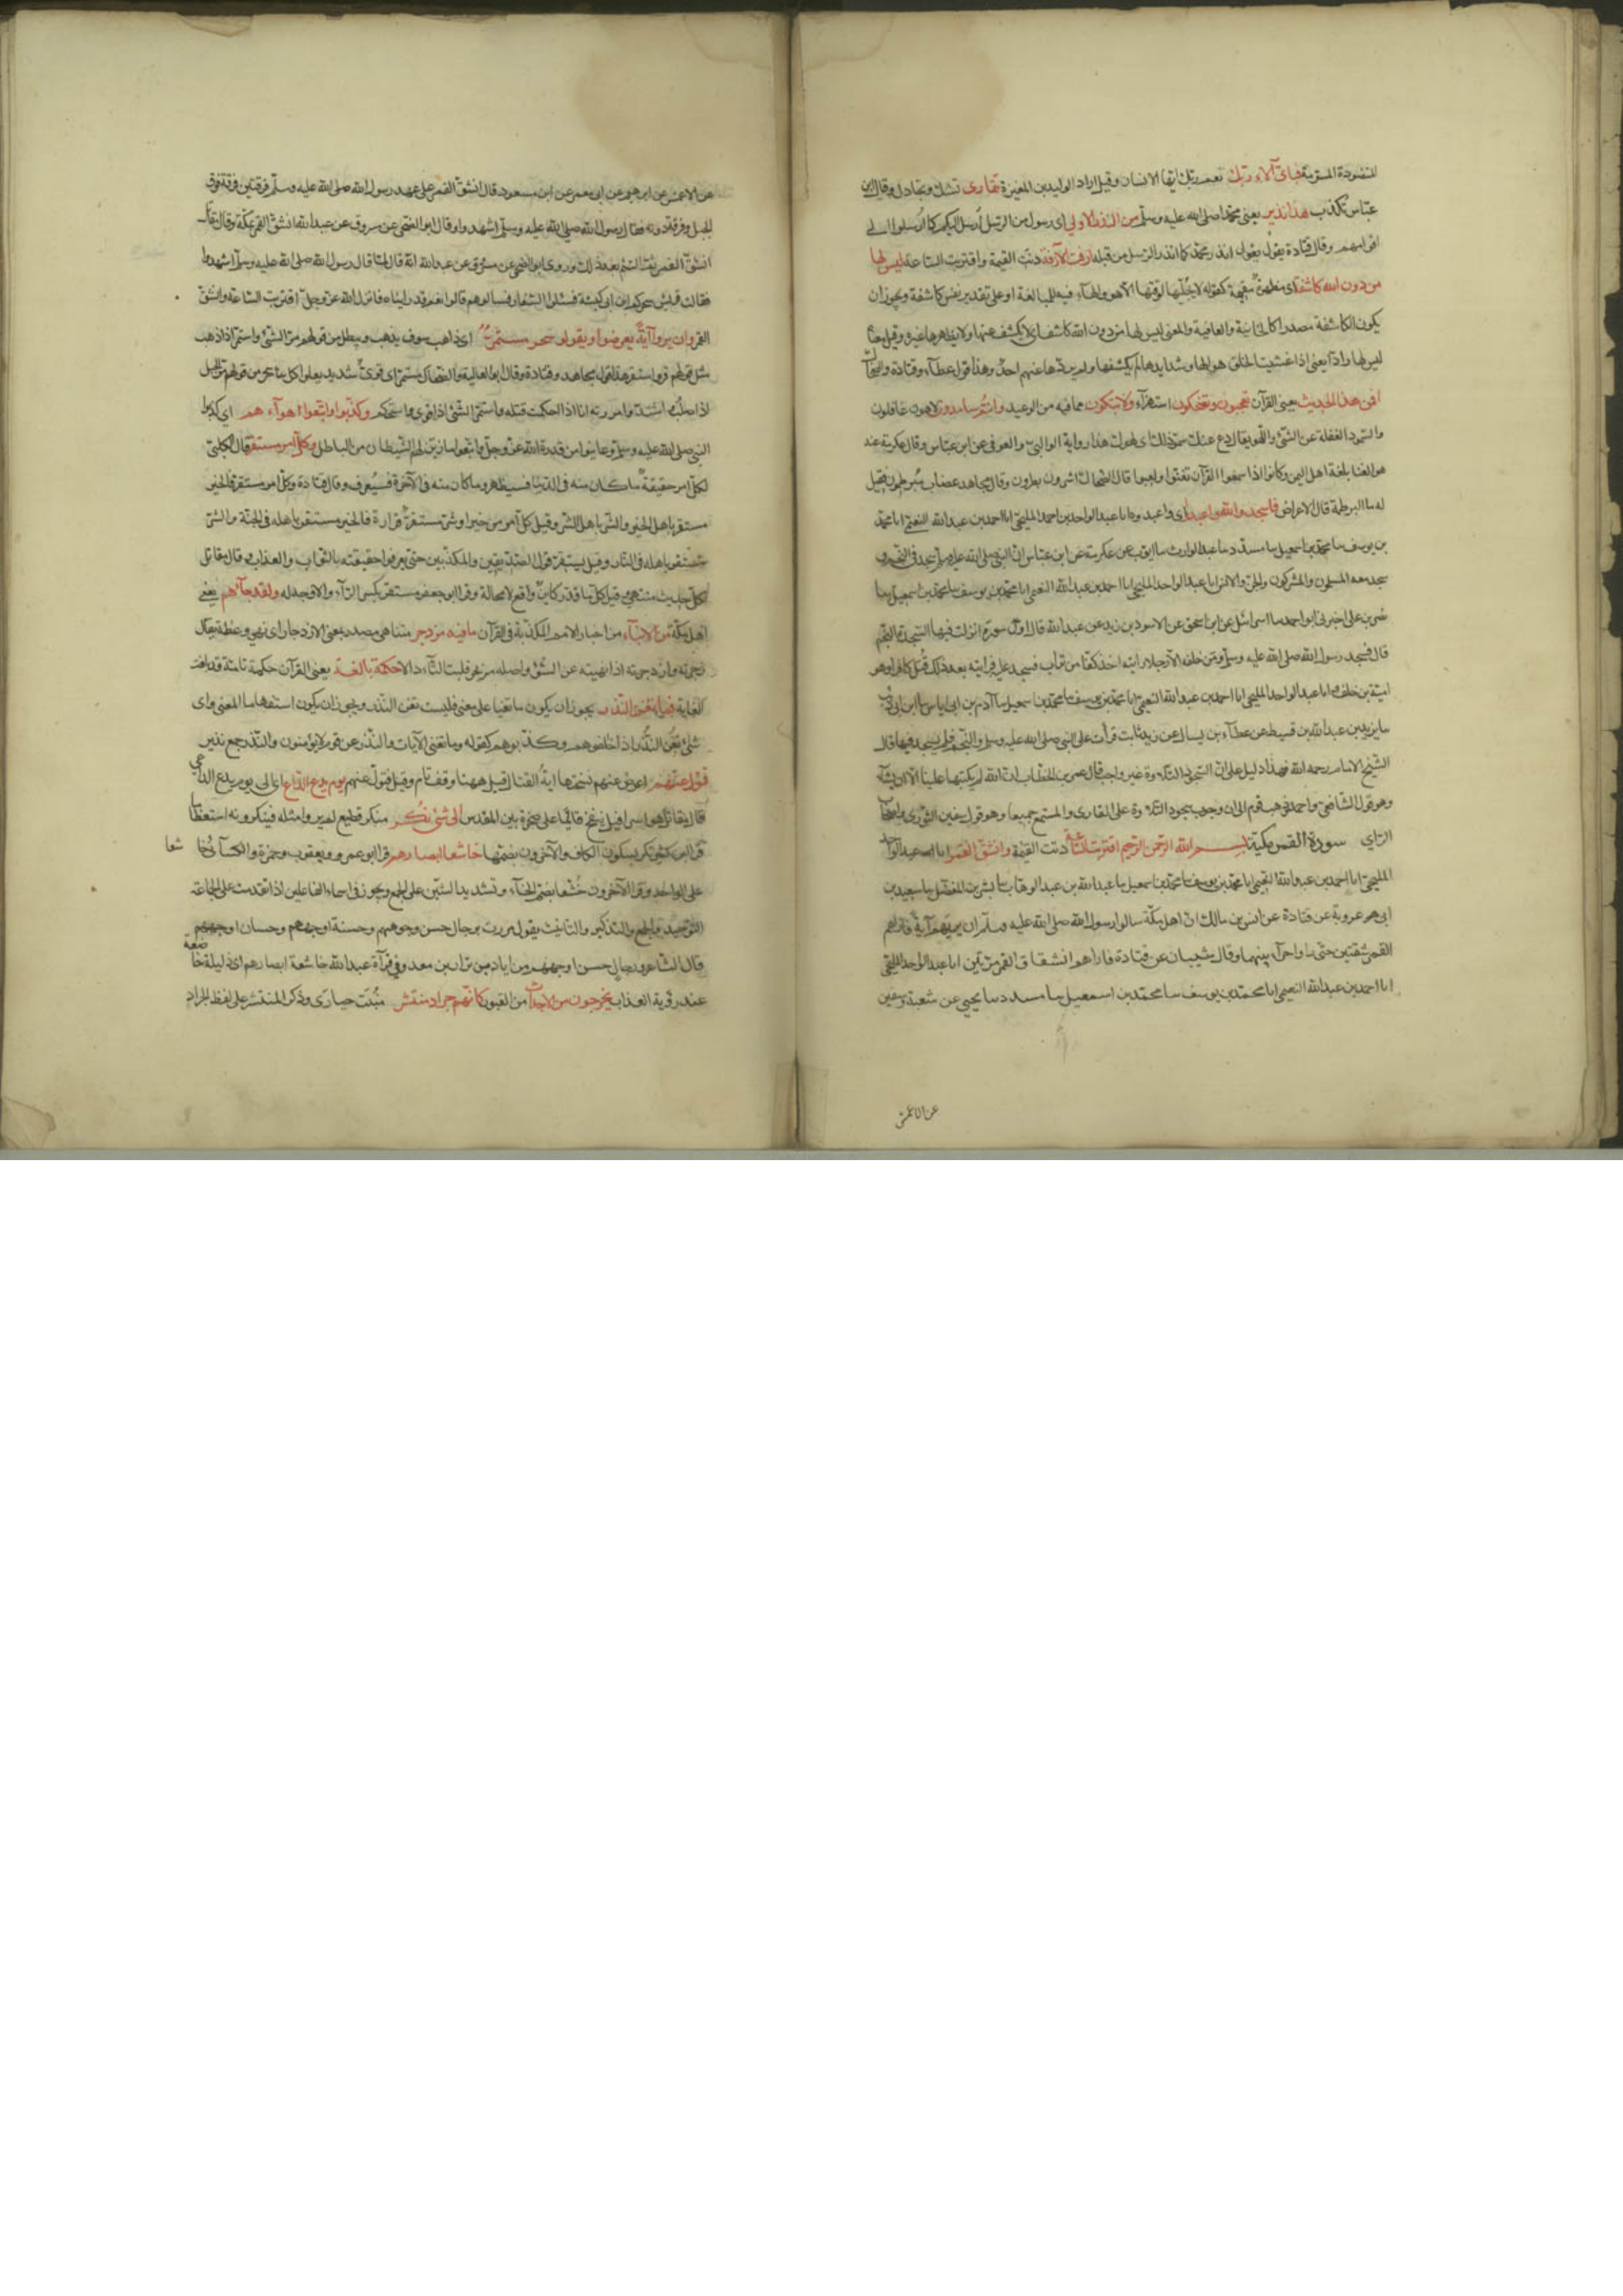 المنضودة المسومة فبأى آلاء ربك نعم ربك ايها الانسان وقيل اراد الوليد بن المغيرة تتمارى تشك وتجادل وقال ابن
عباس تكذب هذا نذير يعنى محمدا صلى الله عليه وسلم من النذر الاولى اى رسول من الرسل ارسل اليكم كما ارسلوا الى
اقوامهم وقال قتادة يقول انذر محمد كما انذر الرسل من قبله ازفت الآزفة دنت القيمة واقتربت الساعة ليس لها
من دون الله كاشفة اى مظهرة مقيمة كقوله لا يجليها لوقتها الا هو والهاء فيه للمبالغة او على تقدير نفس كاشفة ويجوز ان
يكون الكاشفة مصدرا كالخائنة والعافية والمعنى ليس لها من دون الله كاشف اى لا يكشف عنها ولا يظهرها غيره وقيل معناه
ليس لها راد يعنى اذا غشيت الخلق اهوالها وشدايدها لم يكشفها ولم يردها عنهم احد وهذا قول عطاء وقتادة والضحاك
افمن هذا الحديث يعنى القرآن تعجبون وتضحكون استهزآء ولا تبكون مما فيه من الوعيد وانتم سامدون لاهون غافلون
والسمود الغفلة عن الشئ واللهو يقال دع عنك سمودك اى لهوك هذا رواية الوالبى والعوفى عن ابن عباس وقال عكرمة عنه
هو الغنا بلغة اهل اليمن وكانوا اذا سمعوا القرآن تغنوا ولعبوا قال الضحاك اشرون بطرون وقال مجاهد غضاب مبرطمون فقيل
له ما البرطمة قال الاعراض فاسجدوا لله واعبدوا اى واعبدوه انا عبد الواحد بن احمد المليحى انا احمد بن عبد الله النعيمى انا محمد
بن يوسف نا محمد بن اسمعيل نا مسدد نا عبد الوارث نا ايوب عن عكرمة عن ابن عباس ان النبى صلى الله عليه وسلم سجد فى النجم و
سجد معه المسلمون والمشركون والجن والانس انا عبد الواحد المليحى انا احمد بن عبد الله النعيمى انا محمد بن يوسف نا محمد بن اسمعيل نا
نصر بن على اخبرنى ابو احمد نا اسرائيل عن ابى اسحق عن الاسود بن زيد عن عبد الله قال اول سورة انزلت فيها السجدة النجم
قال فسجد رسول الله صلى الله عليه وسلم ومن خلفه الا رجلا رايته اخذ كفا من تراب فسجد عليه فرايته بعد ذلك قتل كافرا وهو
امية بن خلف انا عبد الواحد المليحى انا احمد بن عبد الله النعيمى انا محمد بن يوسف نا محمد بن اسمعيل نا آدم بن ابى اياس نا ابن ابى ذئب
نا يزيد بن عبد الله بن قسيط عن عطاء بن يسار عن زيد بن ثابت قرأت على النبى صلى الله عليه وسلم والنجم فلم يسجد فيها قال
الشيخ الامام رحمه الله فهذا دليل على ان السجود التلاوة غير واجب قال عمر بن الخطاب ان الله لم يكتبها علينا الا ان نشاء
وهو قول الشافعى واحمد وذهب قوم الى ان وجوب سجود التلاوة على القارى والمستمع جميعا وهو قول سفين الثورى واصحاب
الراى سورة القمر مكية بسم الله الرحمن الرحيم اقتربت الساعة دنت القيمة وانشق القمر انا عبد الواحد
المليحى انا احمد بن عبد الله النعيمى انا محمد بن يوسف نا محمد بن اسمعيل نا عبد الله بن عبد الوهاب نا بشر بن المفضل نا سعيد بن
ابى عروبة عن قتادة عن انس بن مالك ان اهل مكة سالوا رسول الله صلى الله عليه وسلم ان يريهم آية فاراهم
القمر شقتين حتى راوا حرآء بينهما وقال شيبان عن قتادة فاراهم انشقاق القمر مرتين انا عبد الواحد المليحى
انا احمد بن عبد الله النعيمى انا محمد بن يوسف نا محمد بن اسمعيل نا مسدد نا يحيى عن شعبة وسفين
عن الاعمش
عن الاعمش عن ابرهيم عن ابى معمر عن ابن مسعود قال انشق القمر على عهد رسول الله صلى الله عليه وسلم فرقتين فرقة فوق
الجبل وفرقة دونه فقال رسول الله صلى الله عليه وسلم اشهدوا وقال ابو الضحى عن مسروق عن عبد الله انشق القمر بمكة وقال مقاتل
انشق القمر ثم التئم بعد ذلك وروى ابو الضحى عن مسروق عن عبد الله انه قال لما قال رسول الله صلى الله عليه وسلم اشهدوا
فقالت قريش سحركم ابن ابى كبشة فسئلوا السفار فسالوهم قالوا نعم قد رايناه فانزل الله عز وجل اقتربت الساعة وانشق
القمر وان يروا آية يعرضوا ويقولوا سحر مستمر اى ذاهب سوف يذهب ويبطل من قولهم مر الشئ واستمر اذا ذهب
مثل قولهم قر واستقر هذا قول مجاهد وقتادة وقال ابو العالية والضحاك مستمر اى قوى شديد يعلوا كل سحر من قولهم مر الحبل
اذا صلب واشتد وامررته انا اذا احكمت فتله واستمر الشئ اذا قوى واستحكم وكذبوا واتبعوا اهوآءهم اى كذبوا
النبى صلى الله عليه وسلم وما عاينوا من قدرة الله عز وجل واتبعوا ما زين لهم الشيطان من الباطل وكل امر مستقر قال الكلبى
لكل امر حقيقة ما كان منه فى الدنيا فسيظهر وما كان منه فى الآخرة فسيعرف وقال قتادة وكل امر مستقر فالخير
مستقر باهل الخير والشر باهل الشر وقيل كل امر من خير او شر مستقر قراره فالخير مستقر باهله فى الجنة والشر
مستقر باهله فى النار وقيل يستقر قول المصدقين والمكذبين حتى يعرفوا حقيقته بالثواب والعذاب وقال مقاتل
لكل حديث منتهى وقيل كل ما قدر كاين واقع لا محالة وقرا ابو جعفر مستقر بكسر الرآء ولا وجه له ولقد جآءهم يعنى
اهل مكة من الانبآء من اخبار الامم المكذبة فى القرآن ما فيه مزدجر متناهى مصدر بمعنى الازدجار اى نهى وعظة يقال
زجرته وازدجرته اذا نهيته عن السوء واصله مزتجر قلبت التآء دالا حكمة بالغة يعنى القرآن حكمة تامة قد بلغت
الغاية فما تغنى النذر يجوز ان يكون ما نفيا على معنى فليست تغنى النذر ويجوز ان يكون استفهاما المعنى واى
شئ تغنى النذر اذا خالفوهم وكذبوهم كقوله وما تغنى الآيات والنذر عن قوم لا يؤمنون والنذر جمع نذير
فتول عنهم اعرض عنهم نسختها آية القتال قيل ههنا وقف تام وقيل فتول عنهم يوم يدع الداع اى الى يوم يدع الداعى
قال مقاتل هو اسرافيل ينفخ قائما على صخرة بيت المقدس الى شئ نكر منكر فظيع لم ير وامثله فينكرونه استعظاما
قرا ابن كثير نكر بسكون الكاف والآخرون بضمها خاشعا ابصارهم قرا ابو عمرو ويعقوب وحمزة والكسائى خا
شعا
على الواحد وقرا الآخرون خشعا بضم الخاء وتشديد الشين على الجمع ويجوز فى اسماء الفاعلين اذا تقدمت على الجماعة
التوحيد والجمع والتذكير والتانيث يقول مررت برجال حسن وجوههم وحسنة اوجههم وحسان اوجههم
قال الشاعر ورجال حسن اوجههم من اياد بن نزار بن معد وفى قرآة عبد الله خاشعة ابصارهم اى ذليلة خاضعة
عند رؤية العذاب يخرجون من الاجداث من القبور كانهم جراد منتشر منبث حيارى وذكر المنتشر على لفظ الجراد